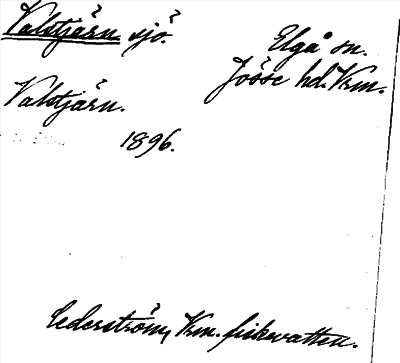 Valstjärn sjö.
Elgå sn.
Jösse hd. Vrm.
Valstjärn.
1896.
Cederström, Vrm. fiskevatten.